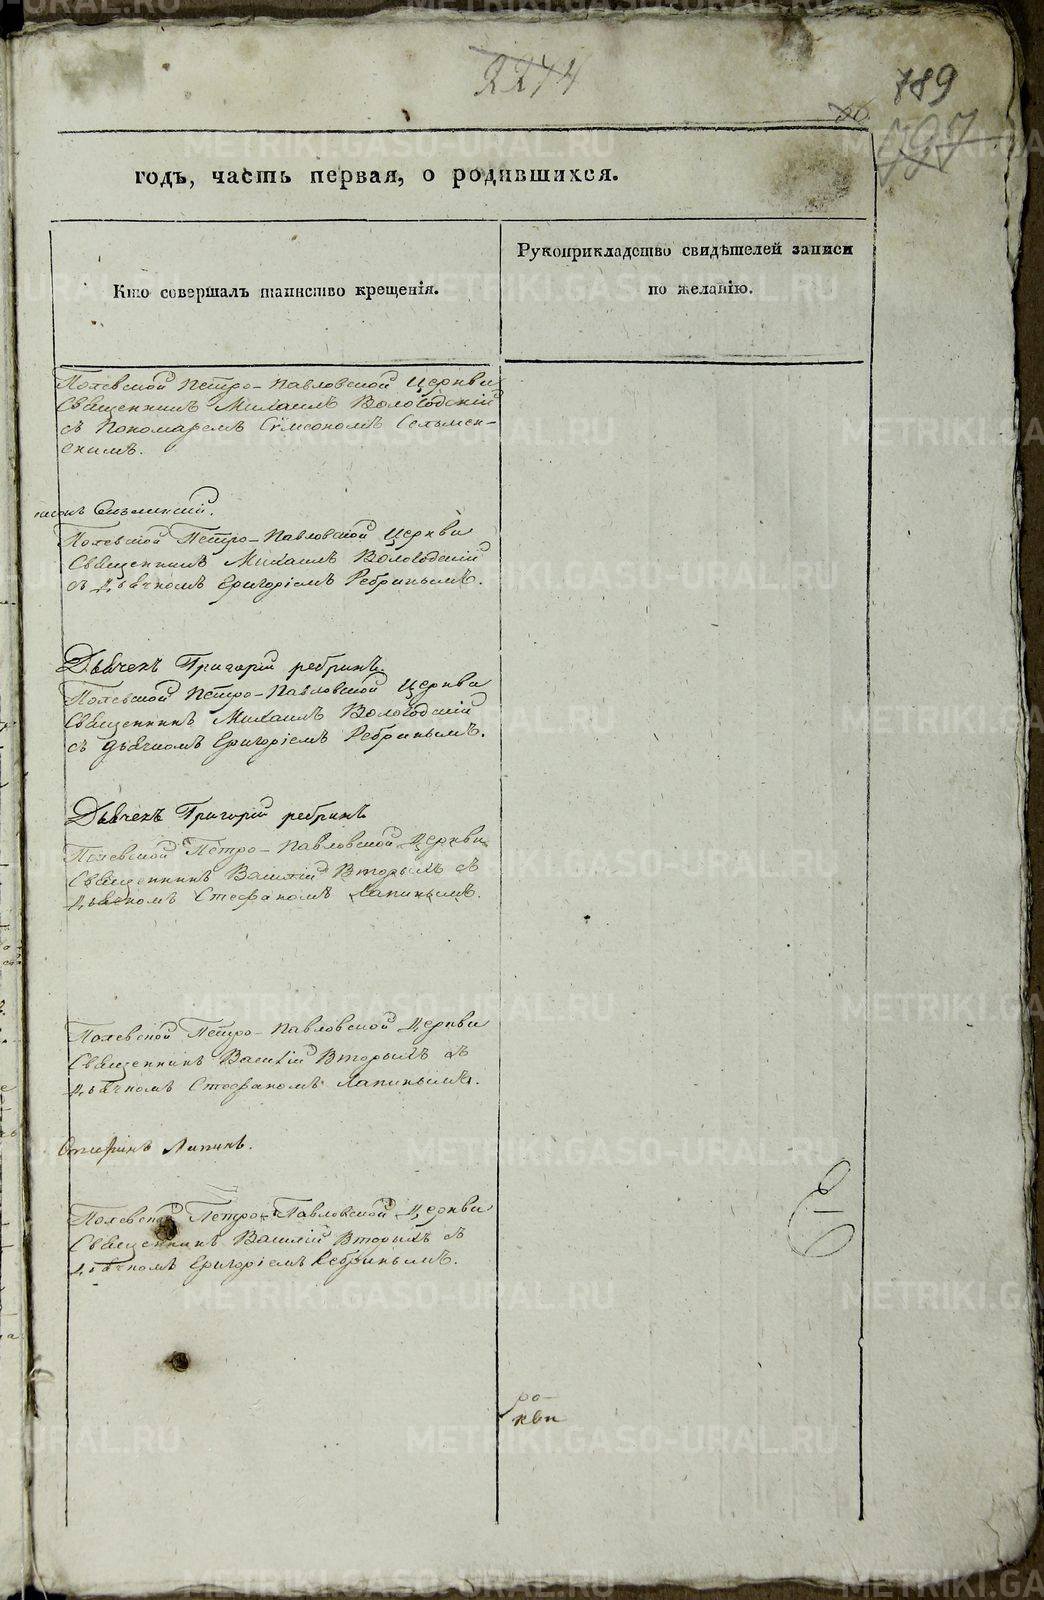 2274
789
797
годъ, часть первая, о родившихся.
Кто совершалъ таинство крещенія.
Рукоприкладство свидѣтелей записи
по желанію.
Полевской Петро-Павловской Церкви
Священникъ Михаилъ Вологодскій
съ Пономаремъ Сѵмеономъ Сельмен-
скимъ.
Полевской Петро-Павловской Церкви
Священникъ Михаилъ Вологодскій
съ Дьячкомъ Григоріемъ Ребринымъ.
Дьячекъ Григорій ребринъ.
Полевской Петро-Павловской Церкви
Священникъ Михаилъ Вологодскій
съ дьячкомъ Григоріемъ Ребринымъ.
Дьячекъ Григорій ребринъ
Полевской Петро-Павловской Церкви
Священникъ Василій Вторыхъ съ
Дьячкомъ Стефаномъ Лапинымъ.
Полевской Петро-Павловской Церкви
Священникъ Василій Вторыхъ съ
Дьячкомъ Стефаномъ Лапинымъ.
Стефанъ Лапинъ.
Полевской Петро-Павловской Церкви
Священникъ Василій Вторыхъ съ
Дьячкомъ Григоріемъ Ребринымъ.
ро-
кви
METRIKI.GASO-URAL.RU